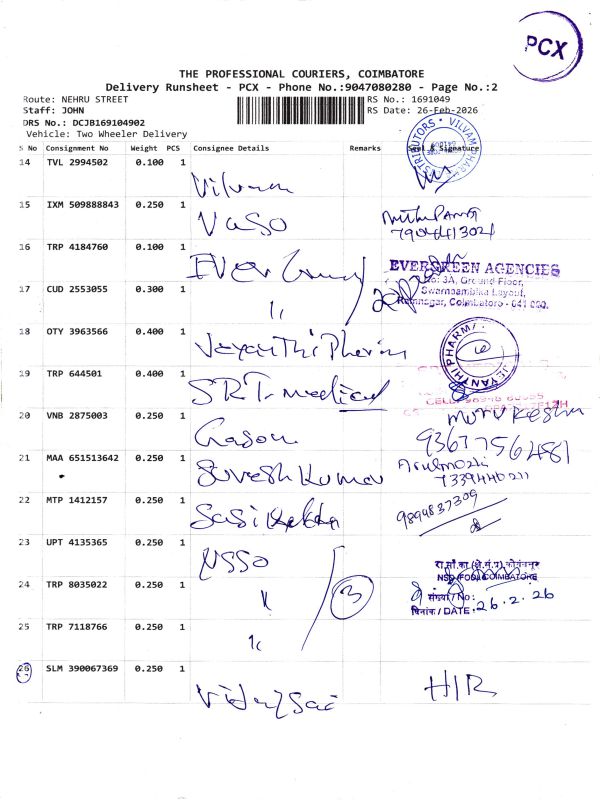 PCX
THE PROFESSIONAL COURIERS, COIMBATORE
Delivery Runsheet - PCX - Phone No.:9047080280 - Page No.:2
Route: NEHRU STREET
RS No.: 1691049
Staff: JOHN
RS Date: 26-Feb-2026
DRS No.: DCJB169104902
Vehicle: Two Wheeler Delivery
S No Consignment No Weight PCS Consignee Details Remarks Seal & Signature
14 TVL 2994502 0.100 1
15 IXM 509888843 0.250 1 VaSo
7904413021
16 TRP 4184760 0.100 1
EVERGREEN AGENCIES
No: 3A, Ground Floor,
Swarnaambika Layout,
Ramnagar, Coimbatore - 641 009.
17 CUD 2553055 0.300 1
18 OTY 3963566 0.400 1
JEYANTHI PHARMA
19 TRP 644501 0.400 1 SRT. medical
20 VNB 2875003 0.250 1
21 MAA 651513642 0.250 1 Suresh Kumar
7339440211
22 MTP 1412157 0.250 1
9894837309
23 UPT 4135365 0.250 1 NSSO
24 TRP 8035022 0.250 1 3
NSO (FOD) COIMBATORE
संख्या / No:
दिनांक / DATE 26.2.26
25 TRP 7118766 0.250 1
26 SLM 390067369 0.250 1 H/R